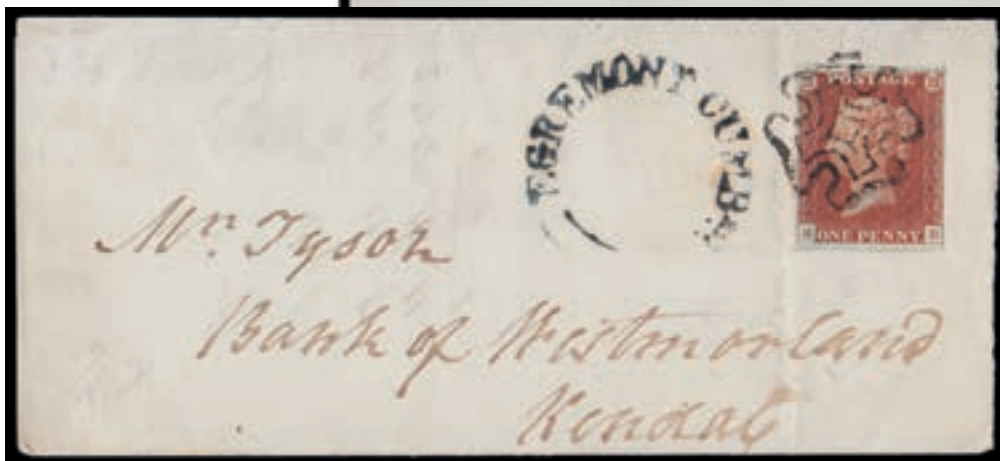 EGREMONT CUMB.
POSTAGE
ONE PENNY
Mr. Tyson
Bank of Westmorland
Kendal